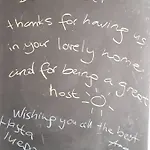 thanks for having us
in your lovely home
and for being a great
host
Wishing you all the best
Hasta